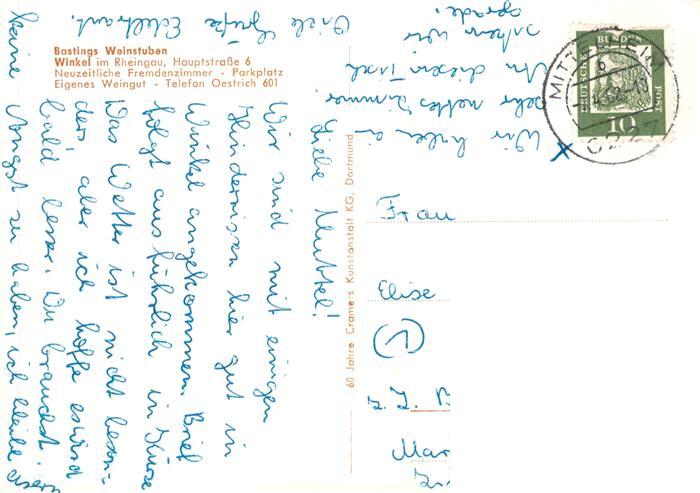 Bastings Weinstuben
Winkel im Rheingau, Hauptstraße 6
Neuzeitliche Fremdenzimmer - Parkplatz
Eigenes Weingut - Telefon Oestrich 601
Liebe Mutter!
Wir sind mit einigen
Hindernissen hier gut in
Winkel angekommen. Brief
folgt ausführlich in Kürze
Das Wetter ist nicht beson-
ders aber ich hoffe es wird
bald besser. Du brauchst
keine Angst zu haben, ich bleibe
Viele Grüße
Edeltraut.
Wir haben ein
sehr nettes Zimmer
An diesem Tisch
sitzen wir
gerade.
60 Jahre Cramers Kunstanstalt KG, Dortmund
DEUTSCHE BUNDESPOST
10
Frau
Elise
Mar